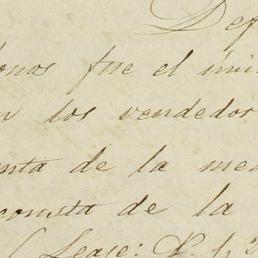 Def
onos fue el uni
n los vendedor
enta de la me
consta de la
( Lease: P. 1, 2